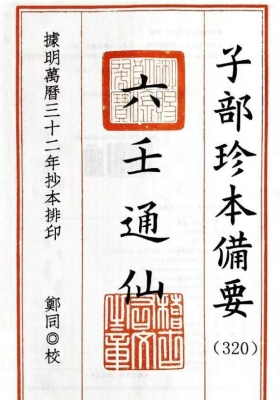 子部珍本備要
(320)
六壬通仙
據明萬曆三十二年抄本排印
鄭同◎校